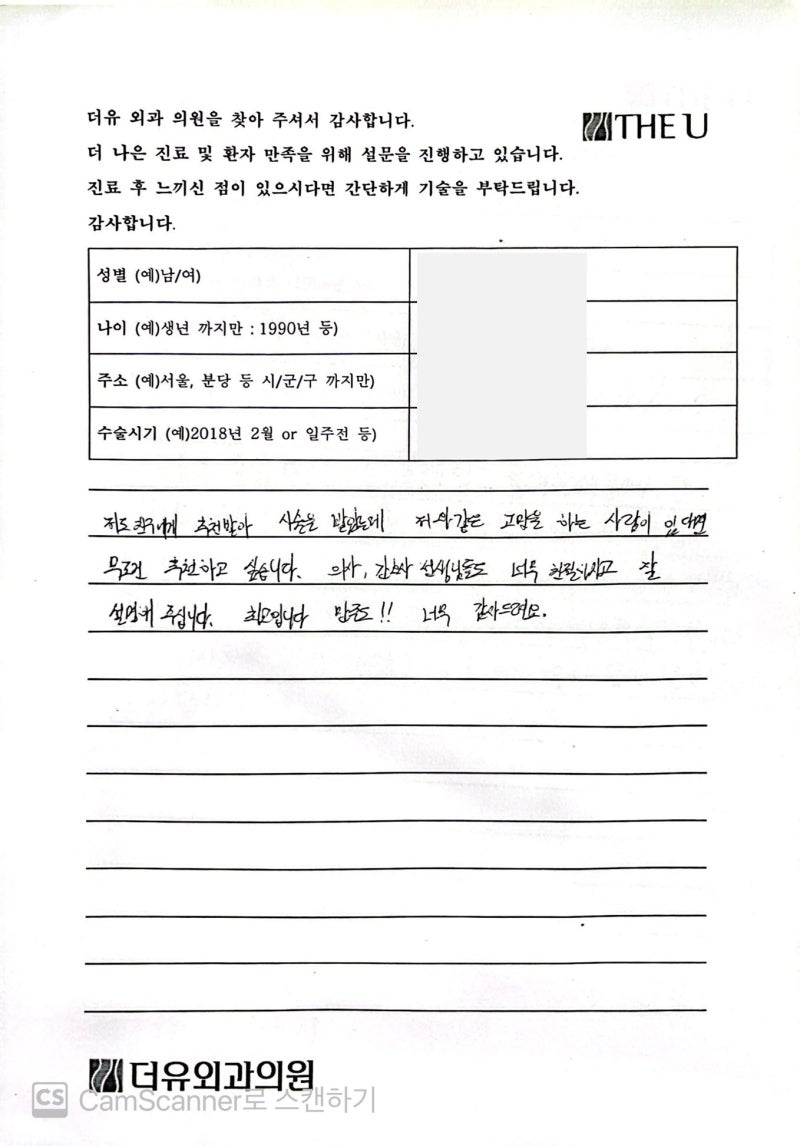 더유 외과 의원을 찾아 주셔서 감사합니다.
THE U
더 나은 진료 및 환자 만족을 위해 설문을 진행하고 있습니다.
진료 후 느끼신 점이 있으시다면 간단하게 기술을 부탁드립니다.
감사합니다.
성별 (예)남/여)
나이 (예)생년 까지만 : 1990년 등)
주소 (예)서울, 분당 등 시/군/구 까지만)
수술시기 (예)2018년 2월 or 일주전 등)
저도 친구에게 추천받아 시술을 받았는데 저와같은 고민을 하는 사람이 있다면
무조건 추천하고 싶습니다. 의사, 간호사 선생님들도 너무 친절하시고 잘
설명해 주십니다. 최고입니다 만족도!! 너무 감사드려요.
더유외과의원
CS CamScanner로 스캔하기